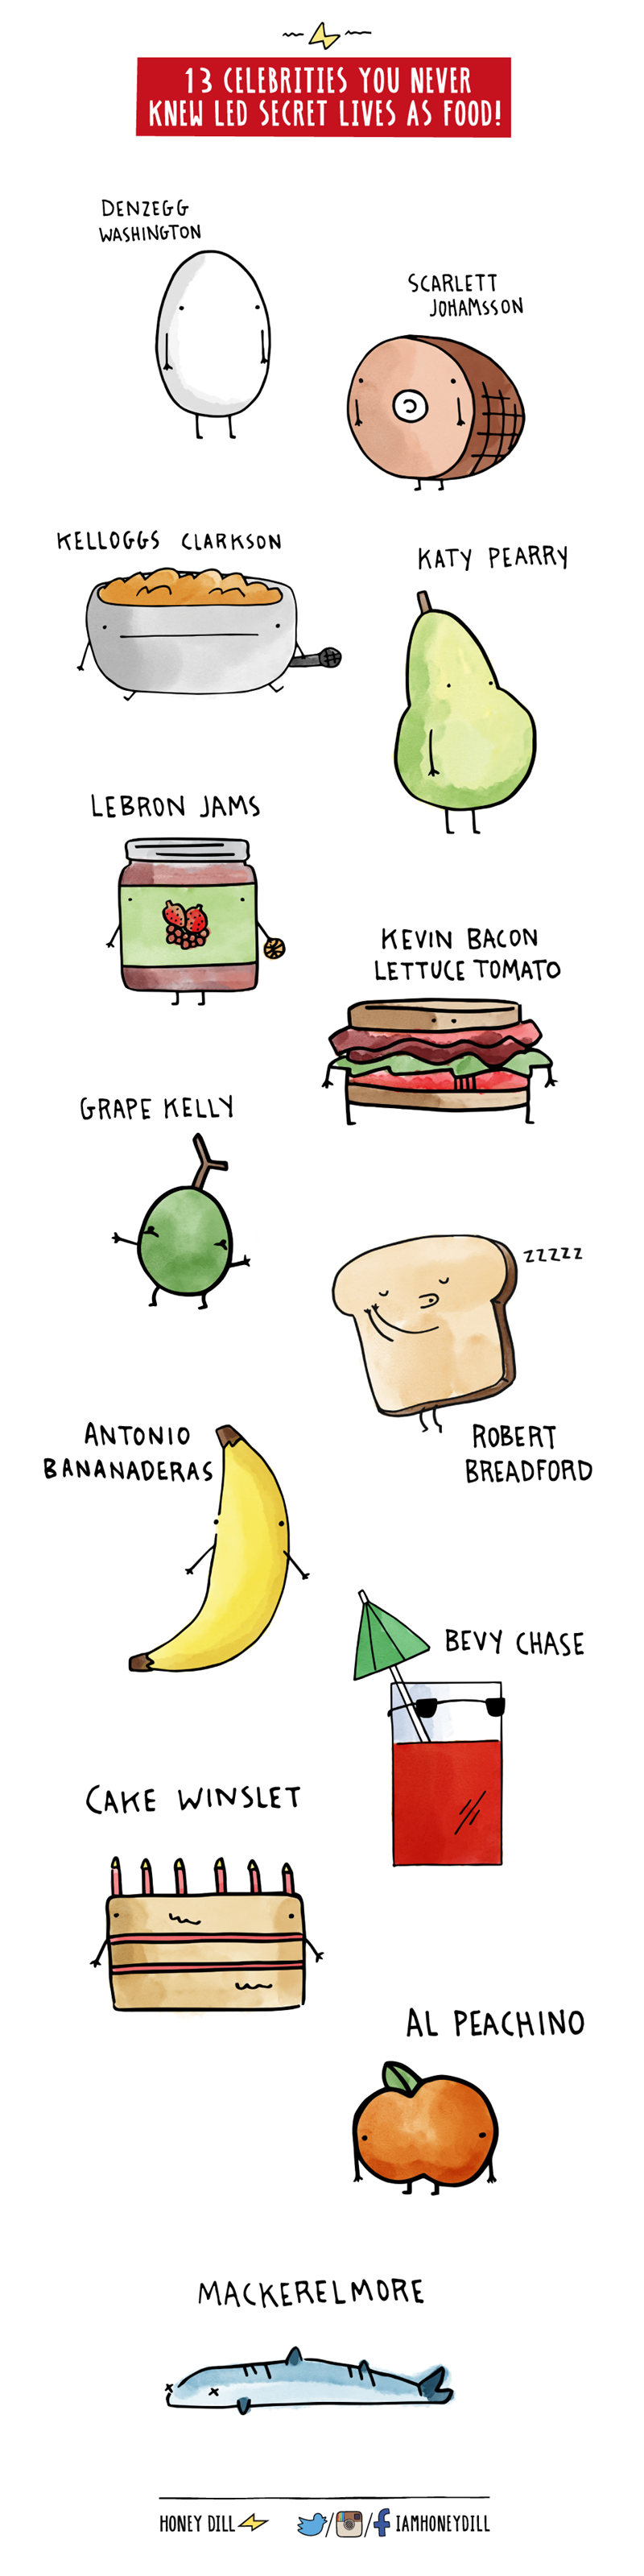 13 CELEBRITIES YOU NEVER
KNEW LED SECRET LIVES AS FOOD!
DENZEGG
WASHINGTON
SCARLETT
JOHAMSSON
KELLOGGS CLARKSON
KATY PEARRY
LEBRON JAMS
KEVIN BACON
LETTUCE TOMATO
GRAPE KELLY
ZZZZZ
ROBERT
BREADFORD
ANTONIO
BANANADERAS
BEVY CHASE
CAKE WINSLET
AL PEACHINO
MACKERELMORE
HONEY DILL
IAMHONEYDILL